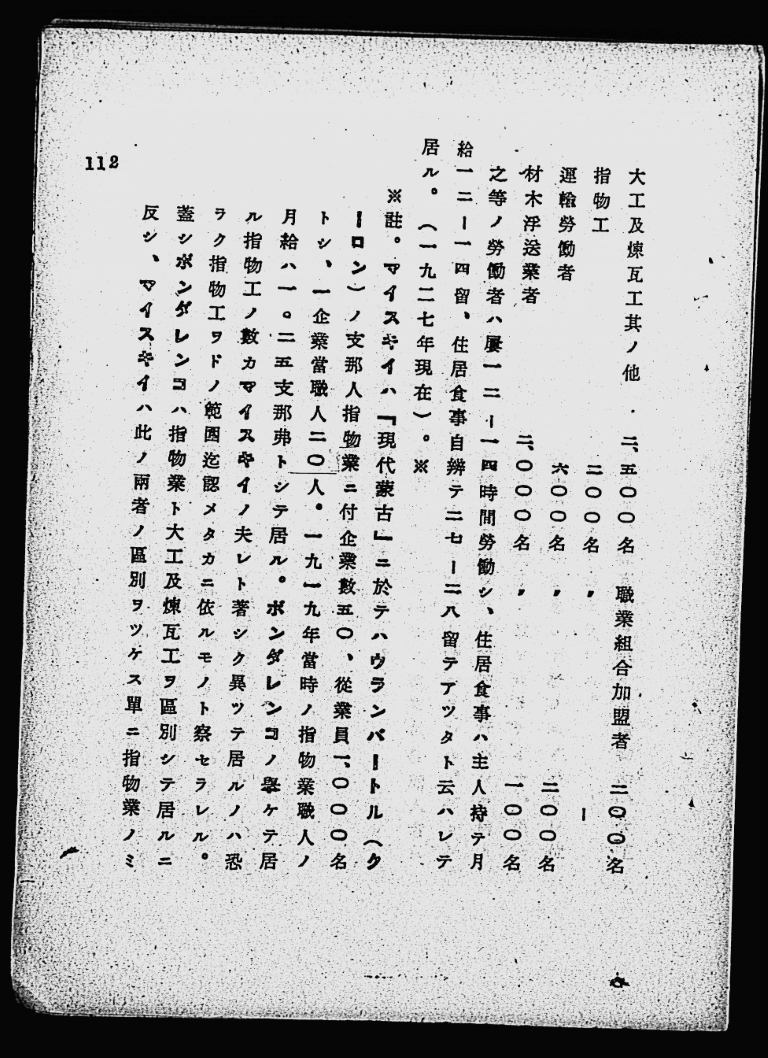 大工及煉瓦工其ノ他 二、五〇〇名 職業組合加盟者 二〇〇名
指物工 二〇〇名 〃 ー
運輸勞働者 六〇〇名 〃 二〇〇名
材木浮送業者 二、〇〇〇名 〃 一〇〇名
之等ノ勞働者ハ屢一二ー一四時間勞働シ、住居食事ハ主人持テ月
給一二ー一四留、住居食事自辨テ二七ー二八留テアツタト云ハレテ
居ル。（一九二七年現在）。※
※註。マイスキイハ『現代蒙古』ニ於テハウランバートル（ク
ーロン）ノ支那人指物業ニ付企業數五〇、從業員一、〇〇〇名
トシ、一企業當職人二〇人。一九一九年當時ノ指物業職人ノ
月給ハ一。二五支那弗トシテ居ル。ボンダレンコノ擧ケテ居
ル指物工ノ數カマイスキイノ夫レト著シク異ツテ居ルノハ恐
ラク指物工ヲドノ範圍迄認メタカニ依ルモノト察セラレル。
蓋シボンダレンコハ指物業ト大工及煉瓦工ヲ區別シテ居ルニ
反シ、マイスキイハ此ノ兩者ノ區別ヲツケス單ニ指物業ノミ
112